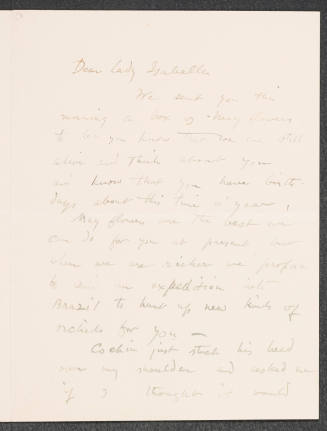 Dear Lady Isabella
We sent you this
morning a box of May flowers
to let you know that we are still
alive and think about you
and know that you have birth-
days about this time o' year,
May flowers are the best we
can do for you at present but
when we are richer we propose
to send an expedition into
Brazil to hunt up new kinds of
orchids for you —
Cochin just stuck his head
over my shoulder and asked me
if I thought it would